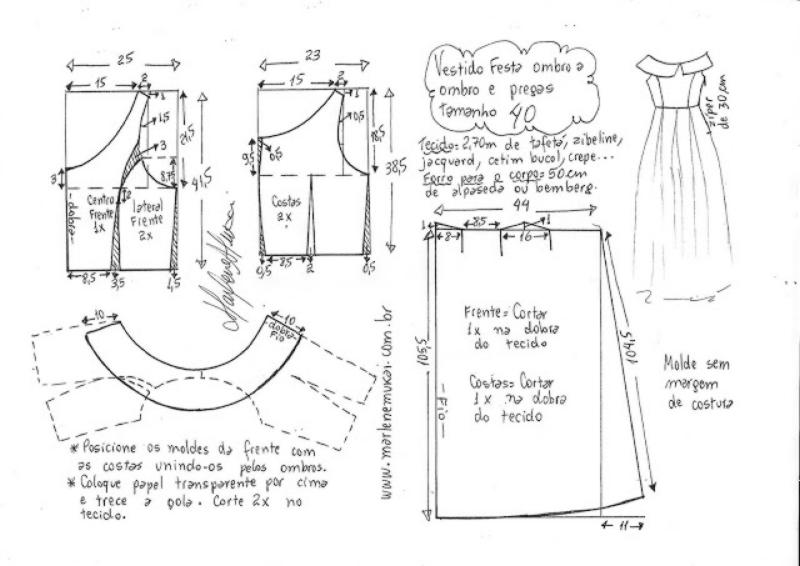 25
15
2
1
1,5
3
21,5
41,5
8,75
3
-dobra-
Centro
Frente
1x
2
lateral
Frente
2x
8,5
3,5
1,5
23
15
2
1
0,5
18,5
38,5
9,5
0,5
Costas
2x
9,5
8,5
2
0,5
Vestido Festa ombro a
ombro e pregas
Tamanho 40
Tecido= 2,70m de tafetá, zibeline,
jacquard, cetim bucol, crepe...
Forro para o corpo= 50cm
de alpaseda ou bemberg.
ziper
de 30,cm
44
1
8,5
1
8
16
105,5
104,5
Frente= Cortar
1x na dobra
do tecido
Costas= Cortar
1x na dobra
do tecido
-Fio-
11
Molde sem
margem
de costura
10
10
-dobra-
Fio
Marlene Mukai
www.marlenemukai.com.br
* Posicione os moldes da frente com
as costas unindo-os pelos ombros.
* Coloque papel transparente por cima
e trece a gola. Corte 2x no
tecido.